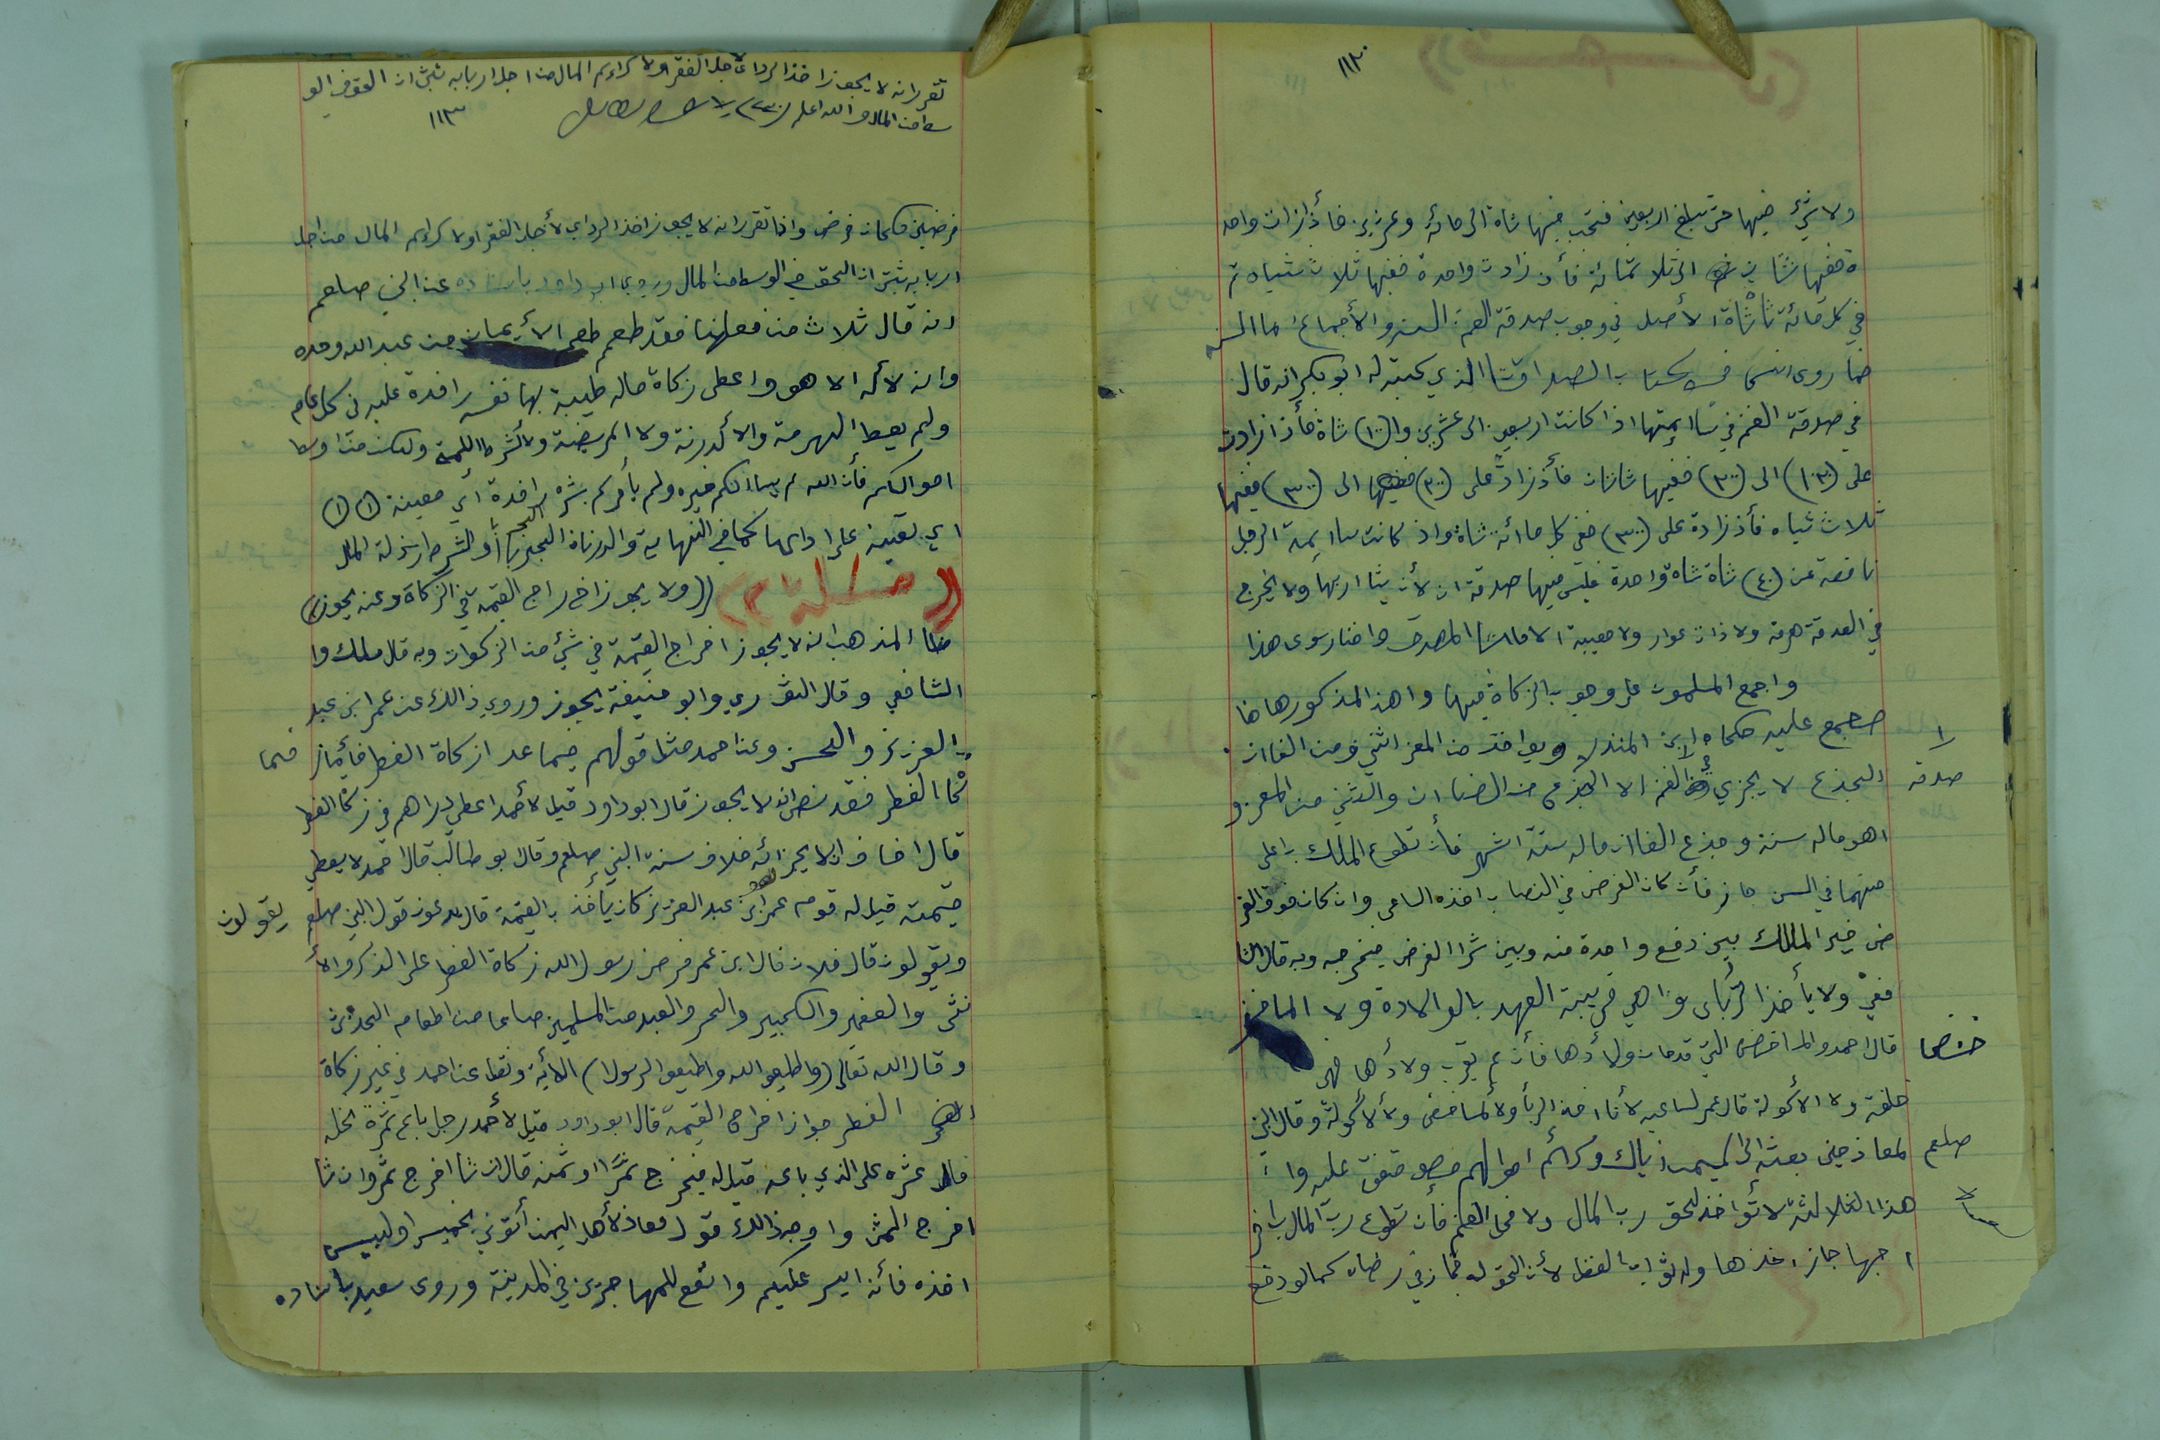 ١١٣٠
ولا شيء فيها حتى تبلغ اربعين فتجب فيها شاة الى مائة وعشرين فأذا زادت واحد
ة ففيها شاتان الى ثلاثمائة فأذ زادت واحدة ففيها ثلاث شياه ثم
في كل مائة شاة الأصل في وجوب صدقة الغنم السنه والأجماع اما السنه
فما روى انس في كتاب الصدقات الذي كتبه له ابو بكر انه قال
في صدقة الغنم في سائمتها اذا كانت اربعين الى عشرين وال(١٠٠) شاة فأذا زادت
على (١٢٠) الى (٢٠٠) ففيها شاتان فأذ زادت على (٢٠٠) الى (٣٠٠) ففيها
ثلاث شياه فأذ زادة على (٣٠٠) ففي كل مائة شاة واذ كانت سائمة الرجل
ناقصة عن (٤٠) شاة شاة واحدة فليس فيها صدقة الا ان يشاء ربها ولا يخرج
في الصدقة هرمة ولا ذات عوار ولا معيبة الا ماشاء المصدق واختار سوى هذا
واجمع المسلمون على وجوب الزكاة فيها وهذا المذكور هاهنا
مجمع عليه حكاه ابن المنذر ويؤخذ من المعز الثني ومن الضان
الجذع لا يجزي في الغنم الا الجذع من الضان والثني من المعز و
صدقة
اهو ماله سنة وجذع الضان ماله ستة اشهر فأن تطوع المالك باعلى
منهما في السن جاز فأن كان الفرض في النصاب اخذه الساعي وان كان فوق الفر
ض خير المالك بين دفع واحدة منه وبين شرا الفرض فيخرجه وبه قال الشا
فعي ولا يأخذ الربى وهي قريبة العهد بالولادة ولا الماخض
قال احمد والماخض التي قد حان ولادها فأن لم يقرب ولادها فهي
خلفة ولا الأكولة قال عمر لساعيه لا تاخذ الربا ولا الماخض ولا الأكولة وقال النبي
صلعم لمعاذ حين بعثه الى اليمن اياك وكرائم اموالهم متفق عليه و
هذا الثلاثة لا تؤاخذ لحق رب المال ولا فحل الغنم فأن تطوع رب المال باخر
اجها جاز اخذها وله ثواب الفضل لأن الحق له فجاز في رضاه كما لو دفع
تقرر انه لا يجوز اخذ الردائ لأجل الفقر ولا كرائم المال من اجل اربابه ثبت ان الحق في الو
سط من المال والله اعلم
١١٣
فرضين مكان فرض واذا تقرر انه لا يجوز اخذ الرداي لأجل الفقر اولا كرائم المال من اجل
اربابه ثبت ان الحق في الوسط من المال وروى ابو داود باسناده عن النبي صلعم
انه قال ثلاث من فعلهن فقد طعم طعم الأيمان من عبد الله وحده
وانه لا اله الا هو واعطى زكاة ماله طيبة بها نفسه رافدة عليه في كل عام
ولم يعط الهرمة والا الدرنة ولا المريضة ولا الشرط اللئمة ولكن من اوسط
اموالكم فأن الله لم يسالكم خيره ولم يأمركم بشره رافدة اي معينة (١) (١)
اي تعينه على ادائها كما في النهاية والدرناة الجرباء والشرط ارذلة المال
((مسئلة ٣)) ((ولا يجوز اخراج القيمة في الزكاة وعنه يجوز))
ظاهر المذهب انه لا يجوز اخراج القيمة في شيء من الزكوات وبه قال مالك وا
الشافعي وقال الثوري وابو حنيفة يجوز وروي ذالك عن عمر ابن عبد
العزيز والحسن وعن احمد مثل قولهم فيما عدا زكاة الفطر فأما ز
كاة الفطر فقد نص انه لا يجوز قال ابو داود قيل لأحمد اعطي دراهم في زكاة الفطر
قال اخاف ان لا يجزائه خلاف سنة النبي صلعم وقال ابو طالب قال احمد لا يعطي
قيمته قيل له قوم عمر ابن عبد العزيز كان يأخذ بالقيمة قال يدعون قول النبي صلعم يقولون
ويقولون قال فلان قال ابن عمر فرض رسول الله زكاة الفطر على الذكر والأ
نثى والصغير والكبير والحر والعبد من المسلمين صاعا من اطعام الحديث
وقال الله تعالى (واطيعوا الله واطيعوا الرسول) الأية ونقل عن احمد في غير زكاة
الفطر جواز اخراج القيمة قال ابو داود قيل لأحمد رجل باع ثمرة نخله
قال عشره على الذي باعه قيل له فيخرج تمرا او ثمنه قال ان شا اخرج تمر وان شا
اخرج الثمن ووجه ذالك قول معاذ لأهل اليمن أتوني بخميس او لبيس
اخذه فأنه ايسر عليكم وانفع للمهاجرين في المدينة وروى سعيد باسناده